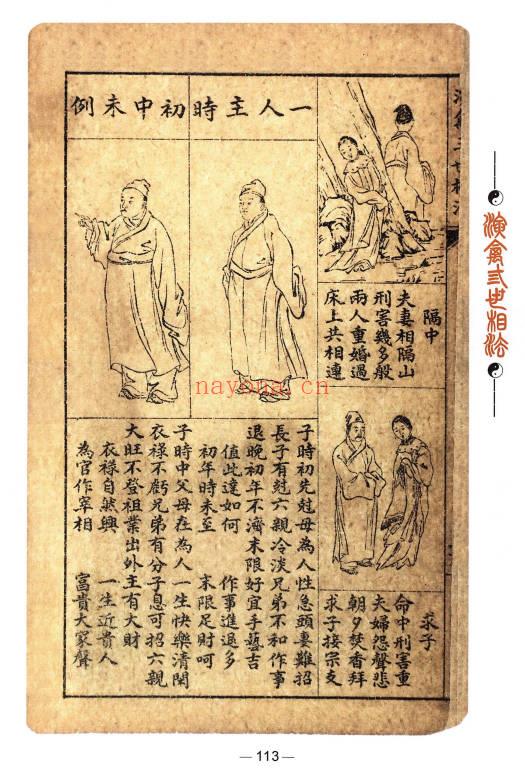 演禽三世相法
隔中
夫妻相隔山
刑害幾多般
兩人重婚過
床上共相連
求子
命中刑害重
夫婦怨聲悲
朝夕焚香拜
求子接宗支
一人主時初中末例
子時初先尅母為人性急頭妻難招
長子有尅六親冷淡兄弟不和作事
退晚初年不濟末限好宜手藝吉
值此達如何　作事進退多
初年時未至　末限足財呵
子時中父母在為人一生快樂清閑
衣祿不虧兄弟有分子息可招六親
大旺不登祖業出外主有大財
衣祿自然興　一生近貴人
為官作宰相　富貴大家聲
演禽三世相法
nayona.cn
—113—